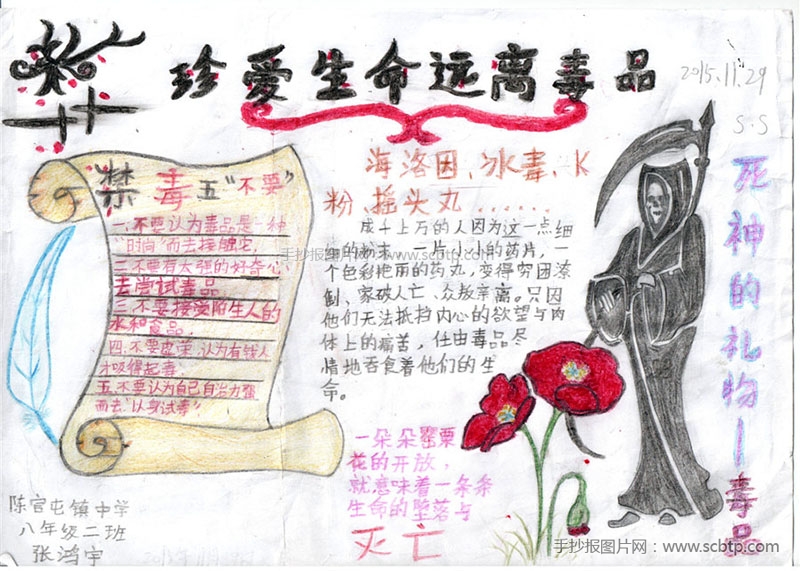 珍爱生命远离毒品
2015.11.29
S.S
禁毒五“不要”
一.不要认为毒品是一种
“时尚”而去接触它,
二.不要有太强的好奇心,
去尝试毒品
三.不要接受陌生人的
水和食品,
四.不要虚荣,认为有钱人
才吸得起毒,
五.不要认为自己自治力强
而去“以身试毒”
海洛因、冰毒、K
粉、摇头丸……
成千上万的人因为这一点细
细的粉末,一片小小的药片,一
个色彩艳丽的药丸,变得穷困潦
倒、家破人亡、众叛亲离。只因
他们无法抵挡内心的欲望与肉
体上的痛苦,任由毒品尽
情地吞食着他们的生
命。
手抄报图片网:www.scbtp.com
死神的礼物—毒品
一朵朵罂粟
花的开放,
就意味着一条条
生命的堕落与
灭亡
陈官屯镇中学
八年级二班
张鸿宇
手抄报图片网:www.scbtp.com